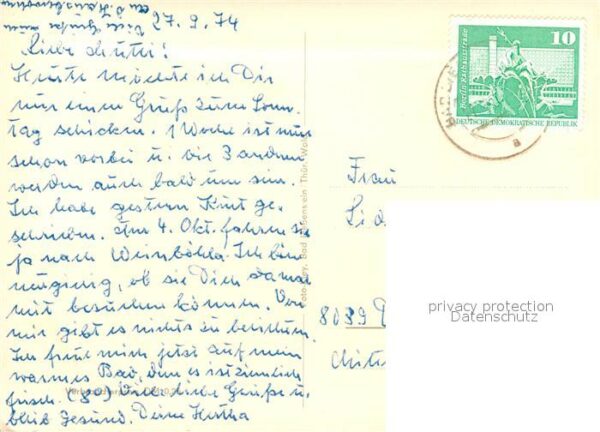 27.9.74
Liebe Mutti!
Heute möchte ich Dir
nur einen Gruß zum Sonn-
tag schicken. 1 Woche ist nun
schon vorbei u. die 3 andern
werden auch bald um sein.
Ich habe gestern Kurt ge-
schrieben. Am 4. Okt. fahren sie
ja nach Weinböhla. Ich bin
neugierig, ob sie Dich damal
mit besuchen können. Von
mir gibt es nichts zu berichten.
Ich freue mich jetzt auf mein
warmes Bad, denn es ist ziemlich
frisch. (8°) Viele liebe Grüße u.
bleib Gesund. Deine Hertha
Viele Grüße
10
Berlin-Rathausstraße
DEUTSCHE DEMOKRATISCHE REPUBLIK
a
Frau
8039
Bad
Thür.
privacy protection
Datenschutz